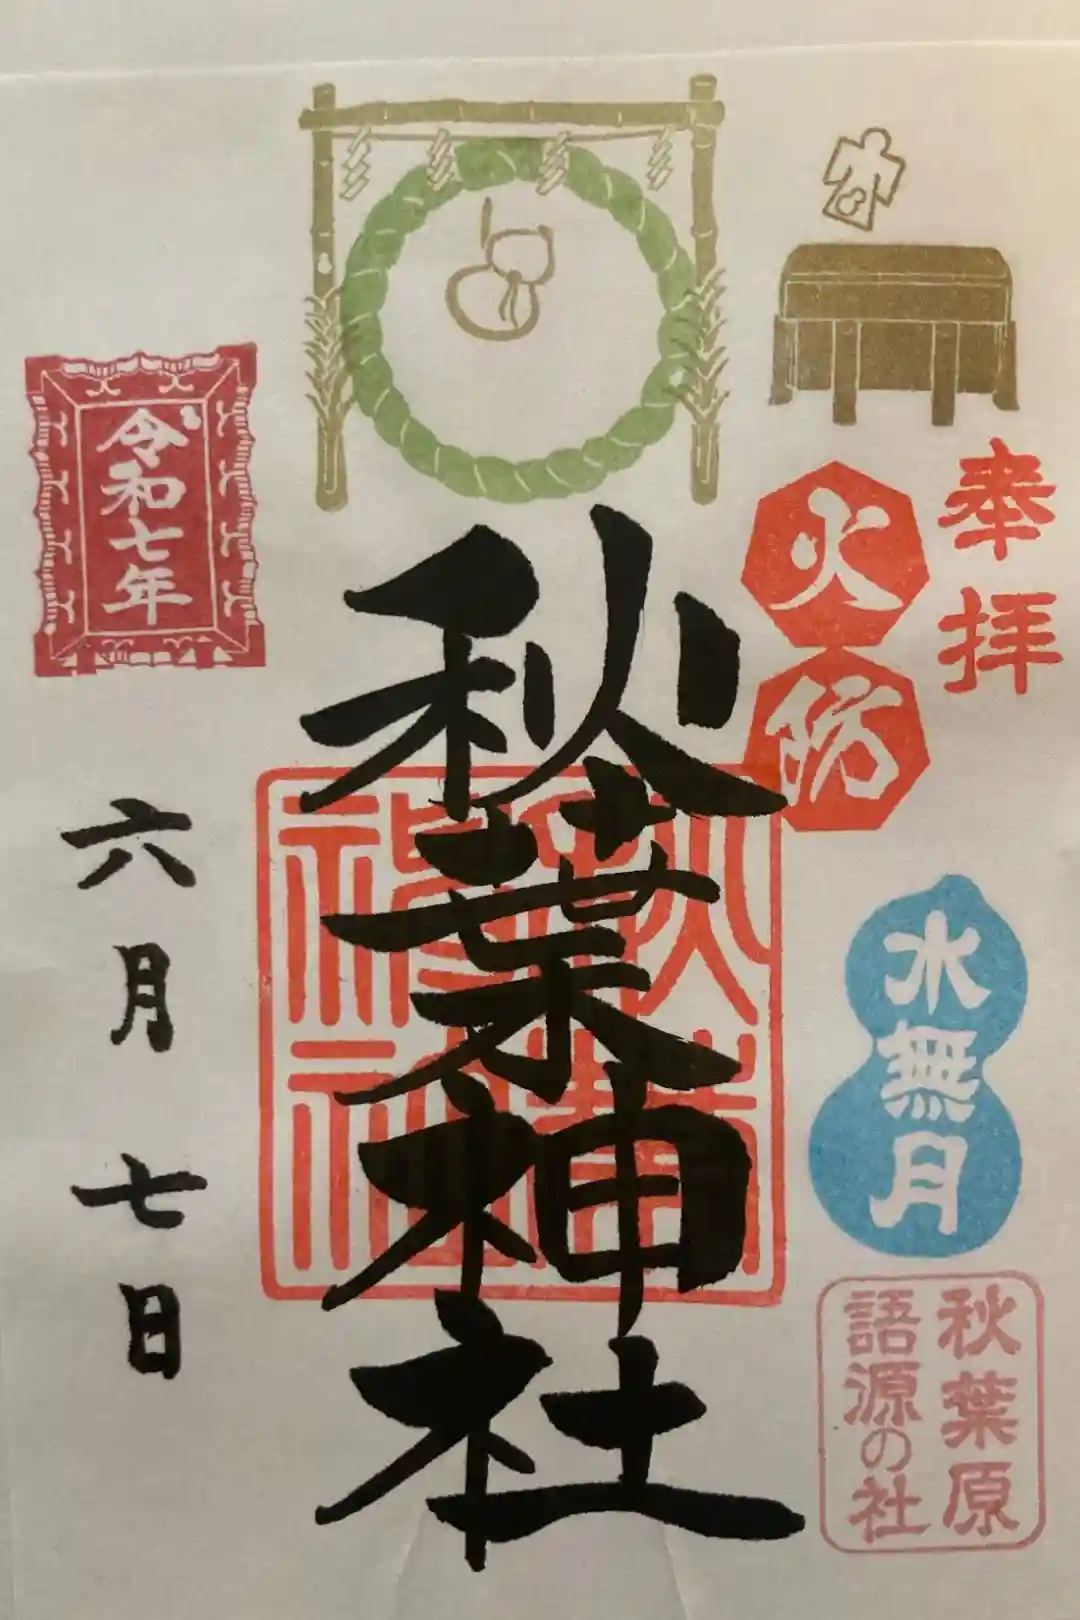 奉拝
火防
水無月
秋葉原
語源の社
秋葉神社
令和七年
六月七日